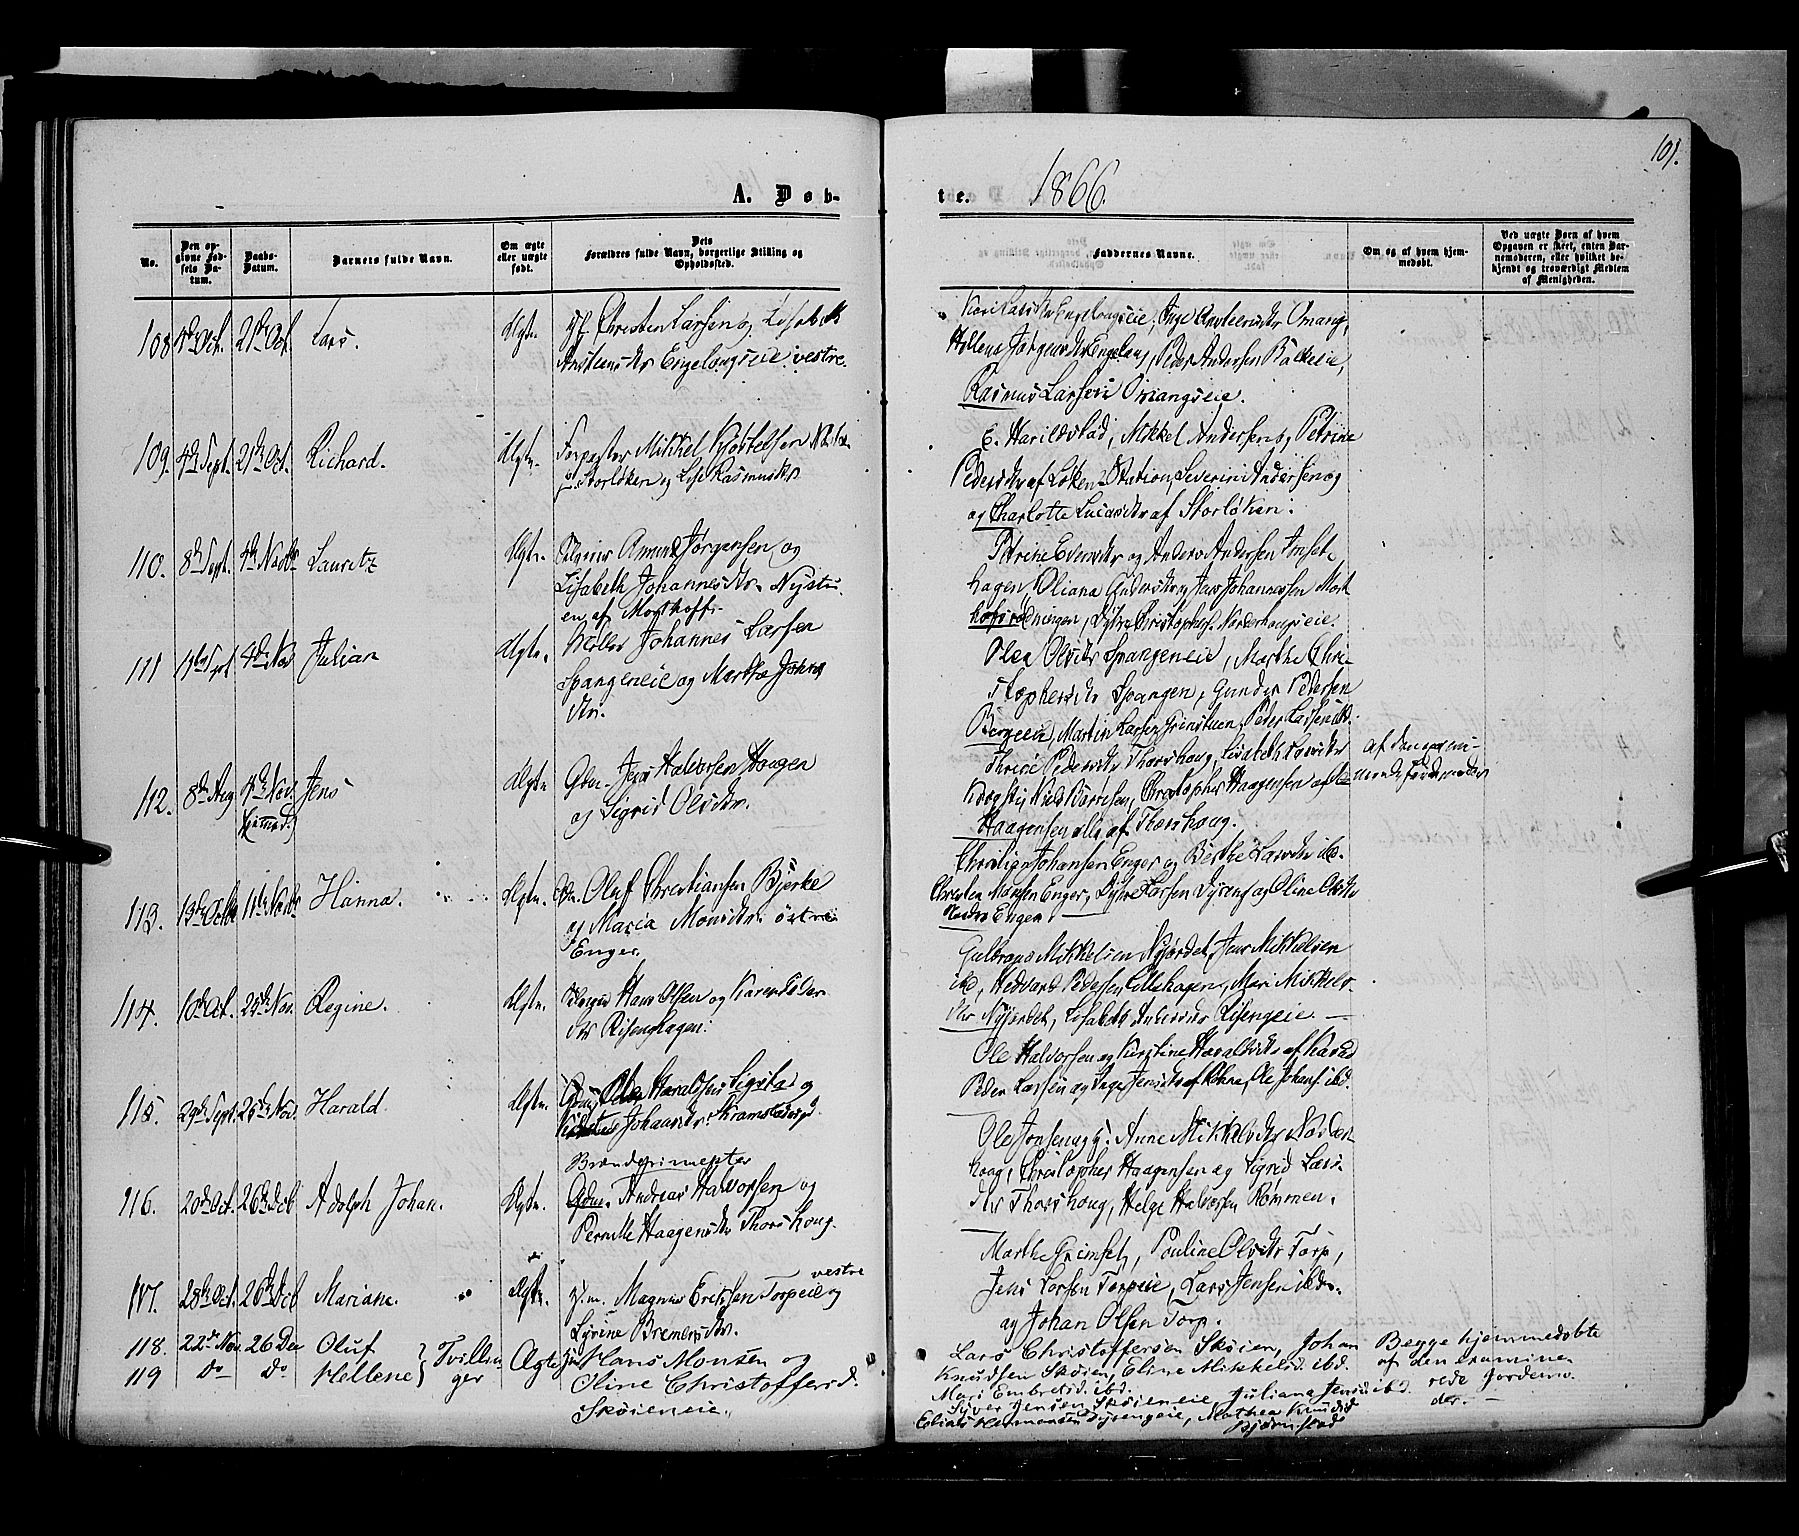 101.
A. Døb-
te.
1866.
No.
Den opgivne Fødsels Datum.
Daabs-Datum.
Barnets fulde Navn.
Om ægte eller uægte født.
Dets Forældres fulde Navn, borgerlige Stilling og Opholdssted.
Faddernes Navne.
Om og af hvem hjemmedøbt.
Ved uægte Børn af hvem Opgaven er skeet, enten Barnemoderen, eller hvilket bekjendt og troværdigt Medlem af Menigheden.
108 Oct. 21de Oct. Lars. Ægte. Christen Larsen og
Engelaugseie vestre.
Engelaugseie, Omang,
Hellene Jørgensdtr Engelaug, Peder Andersen
Rasmus Larsen Omangseie.
109. 4de Sept. 21de Oct. Richard. Ægte. Forpagter Mikkel Kjøstelsen
Storløken og Lise Rasmusdtr
E. Harildstad, Mikkel Andersens, Petrine
Pedersdtr af Løken Station, Severin Andersen og
og Charlotte Lucasdtr af Storløken.
110. 8de Sept. 4de Novbr Lauritz Ægte. Amund Jørgensen og
Lisabeth Johannesdtr Nystu-
en af Morthoff.
Petrine Evensdtr og Anders Andersen Imset-
hagen, Oliana Andersdtr og Jens Johannessen Mort
hofsrødningen, Christophers. Nordenhougseie.
111 Sept 4de Nov Julian Ægte. Møller Johannes Larsen
Spangeneie og Marthe Johns
dtr.
Olea Olsdtr Spangeneie, Marthe Chri-
stophersdtr Spangen, Gunder Pedersen
Bergeie, Martin Larsen Grinstuen, Peder Larsen ibd.
112. 8de Aug 4de Nov. Jens Ægte Gdm. Jens Halvorsen Haagen
(hjemmed.)
og Sigrid Olsdtr.
Thrine Pedersdtr Thorshoug, Lisabeth Larsdtr
Niels Børresen, Christopher Haagensen
Haagensen alle af Thorshoug.
af den exami-
nerede Jordemoder
113. 13de Octbr 11te Novbr Hanna. Ægte. Gdm. Oluf Christiansen Bjerke
og Maria Monsdtr. østre
Enger.
Christian Johansen Enger og Berthe Larsdtr ibd.
Christen Monsen Enger, Syver Larsen Dyreng og Oline Olsdtr
Nedre Enger. —
114. 10de Oct. 25de Nov. Regine. Ægte. Hans Olsen og Karen Peder
dtr Risenghagen.
Gulbrand Mikkelsen Nyjordet, Jens Mikkelsen
ibd, Hedvard Pedersen Lillehagen, Mari Mikkels-
dtr Nyjordet, Lisabeth Andersdtr Risengeie. —
115. 29de Sept. 25de Nov. Harald. Ægte. Gdm. Ole Haraldsen Sigstad og
Johansdtr. Kramstadsgd.
Ole Halvorsen og Kirstine Haraldsdtr af
Peder Larsen og Inge Jensdtr af Røhne, Ole Johans. ibd.
116. 20de Oct. 26de Deb Adolph Johan. Ægte. Brændevinsmester
Gdm. Andreas Halvorsen og
Pernille Haagensdtr Thorshoug.
Ole Jonsen og h. Anne Mikkelsdtr Norden
houg, Christopher Haagensen og Sigrid Lars-
dtr Thorshoug, Helge Halvorsen Rømmen.
117. 28de Oct. 26de Deb Mariane. Ægte. Hsm. Magnus Eriksen Torpeie vestre og
Syrine Bremersdtr.
Marthe Grimset, Pauline Olsdtr Torp,
Jens Larsen Torpeie, Lars Jensen ibd.
og Johan Olsen Torp.
118. 22de Nov. 26 Dec Oluf } Tvillin-
119 Do Do Hellene } ger Ægte Hans Monsen og
Oline Christoffersd.
Skøieneie.
Lars Christoffersen Skøien, Johan
Knudsen Skøien, Eline Mikkelsd. ibd.
Mari Embretsd. ibd.
Syver Jensen Skøieneie, Juliana Jensd ibd.
Elias Hermansen Dyrengeie, Mathea Knudsd
Bjørnstad
Begge hjemmedøbte
af den examine-
rede Jordemo-
der. —